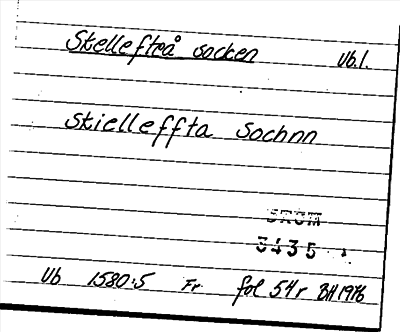 Skellefteå socken Vb.l.
Skielleffta Sochnn
SKUM
3435
Vb 1580:5 Fr fol 54r BH 1976